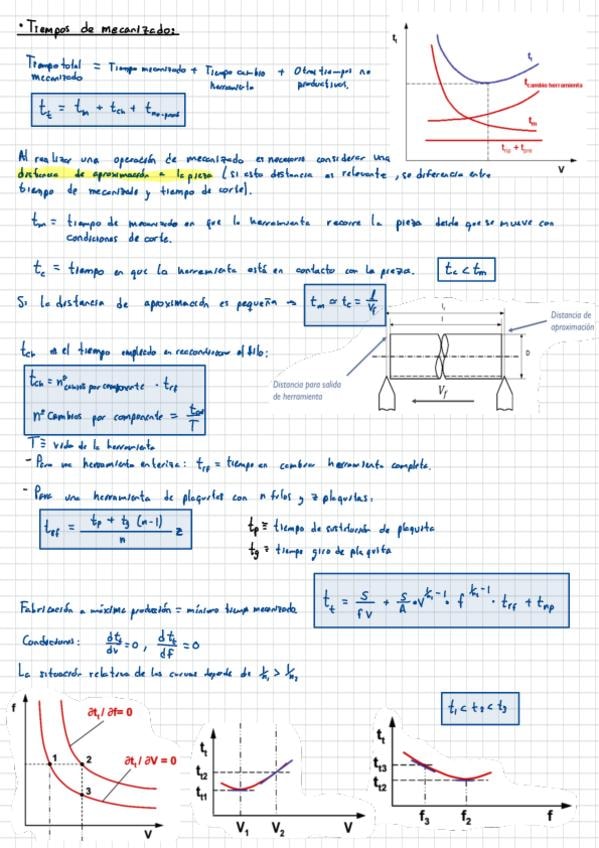 • Tiempos de mecanizado:
Tiempo total mecanizado = Tiempo mecanizado + Tiempo cambio herramienta + Otros tiempos no productivos.
t_t = t_m + t_ch + t_no-prod
t_t
t_t
t_cambio herramienta
t_m
V
Al realizar una operación de mecanizado es necesario considerar una
distancia de aproximación a la pieza (si esta distancia es relevante, se diferencia entre
tiempo de mecanizado y tiempo de corte).
t_m = tiempo de mecanizado en que la herramienta recorre la pieza desde que se mueve con
condiciones de corte.
t_c = tiempo en que la herramienta está en contacto con la pieza.
t_c < t_m
Si la distancia de aproximación es pequeña → t_m ≃ t_c = l / V_f
Distancia de aproximación
l
D
Distancia para salida de herramienta
V_f
t_ch es el tiempo empleado en reacondicionar el filo:
t_ch = nº cambios por componente · t_rf
nº Cambios por componente = / T
T ≡ vida de la herramienta
- Para una herramienta enteriza: t_rf = tiempo en cambiar herramienta completa.
- Para una herramienta de plaquitas con n filos y z plaquitas:
t_rf = (t_p + t_g (n-1)) / n z
t_p ≡ tiempo de sustitución de plaquita
t_g ≡ tiempo giro de plaquita
t_t = S / fV + S / A · V^(1/n₁ - 1) · f^(1/n₂ - 1) · t_rf + t_np
Fabricación a máxima producción = mínimo tiempo mecanizado.
Condiciones: dt_t / dV = 0, dt_t / df = 0
La situación relativa de las curvas depende de 1/n₁ > 1/n₂
t₁ < t₂ < t₃
f
∂t_t / ∂f = 0
∂t_t / ∂V = 0
1
2
3
V
t_t
t_t2
t_t1
V₁
V₂
V
t_t
t_t3
t_t2
f₃
f₂
f